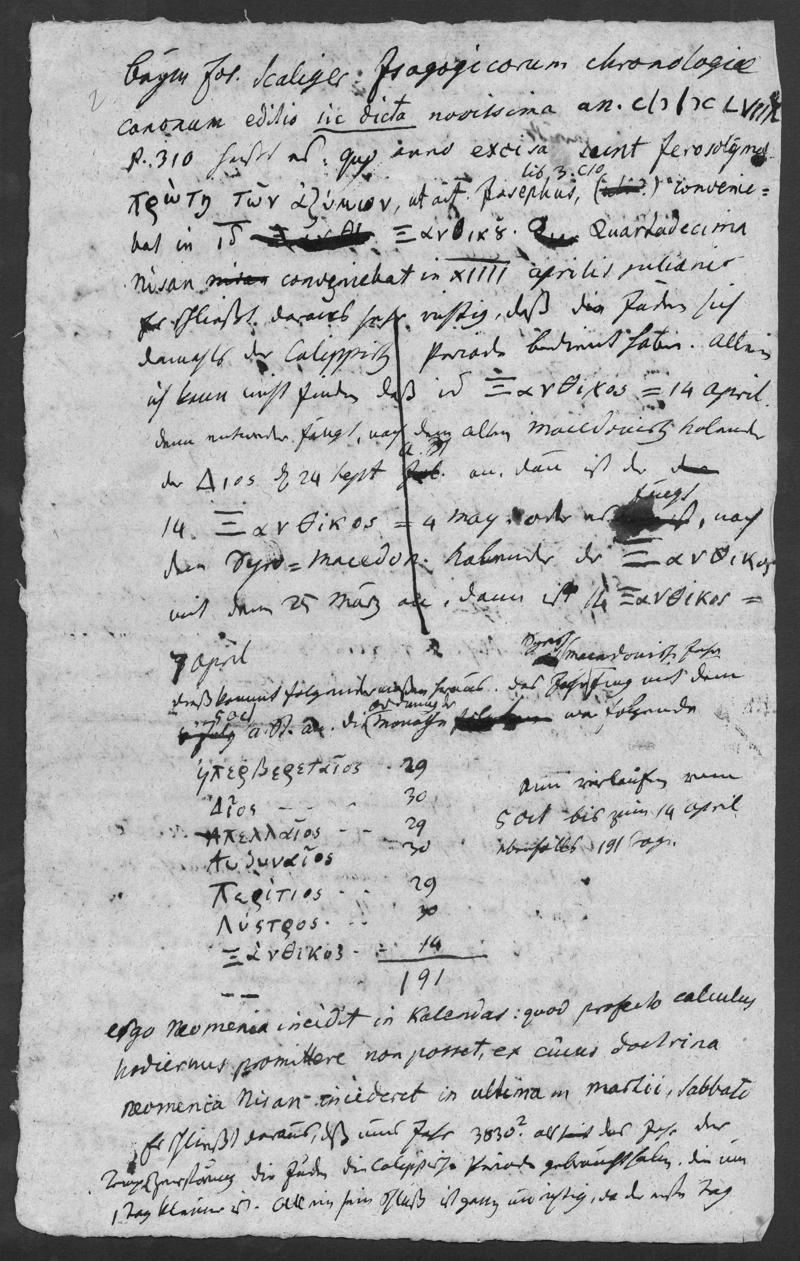 Beÿm Jos. Scaliger Isagogicorum chronologiae
canonum editio sic dicta novissima an. CIƆIƆC LVIII
p. 310 heißt es: quo anno excisa sunt Hierosolyma
lib. 3. c 10
πρώτη τῶν ἀζύμων, ut ait Josephus, convenie=
bat in ιδ Ξανθικȣ. Quartadecima
Nisan conveniebat in XIIII aprilis juliani
Er schließt daraus sehr richtig, daß die Juden sich
damahls der Calippisch Periode bedient haben. Allein
ich kann nicht finden daß ιδ Ξανθικος = 14 April.
denn entweder fängt, nach dem alten Macedonisch Kalender
der Διος d 24 Sept a. St. an. dann ist der
14. Ξανθικος = 4 May. oder es fängt, nach
dem Syro=Macedon. Kalender der Ξανθικος
mit dem 25 März an, dann ist 14 Ξανθικος =
7 April
dieß kommt folgendermaßen heraus. das Macedonisch Jahr fing mit dem
5 Oct a. St. an. die Monathe waren folgende
ὑπερβερεταῖος - 29
Δῖος - - - 30
Απελλαῖος - - 29
Αυδυναῖος 30
Περίτιος - - 29
Λύστρος - - 30
Ξάνθικος - = 14
191
nun verlaufen vom
5 Oct bis zum 14 April
ebenfalls 191 Tage.
ergo Neomenia incidit in Kalendas: quod profecto calculus
hodiernus promittere non posset, ex cuius doctrina
neomenia Nisan incideret in ultimam Martii, Sabbato
Er schließt daraus, daß im Jahr 3830 als das Jahr der
Tempelzerstörung die Juden die Calippische Periode gebraucht haben. die um
1 Tag kleiner ist. Allein sein Schluß ist ganz unrichtig, da der erste Tag